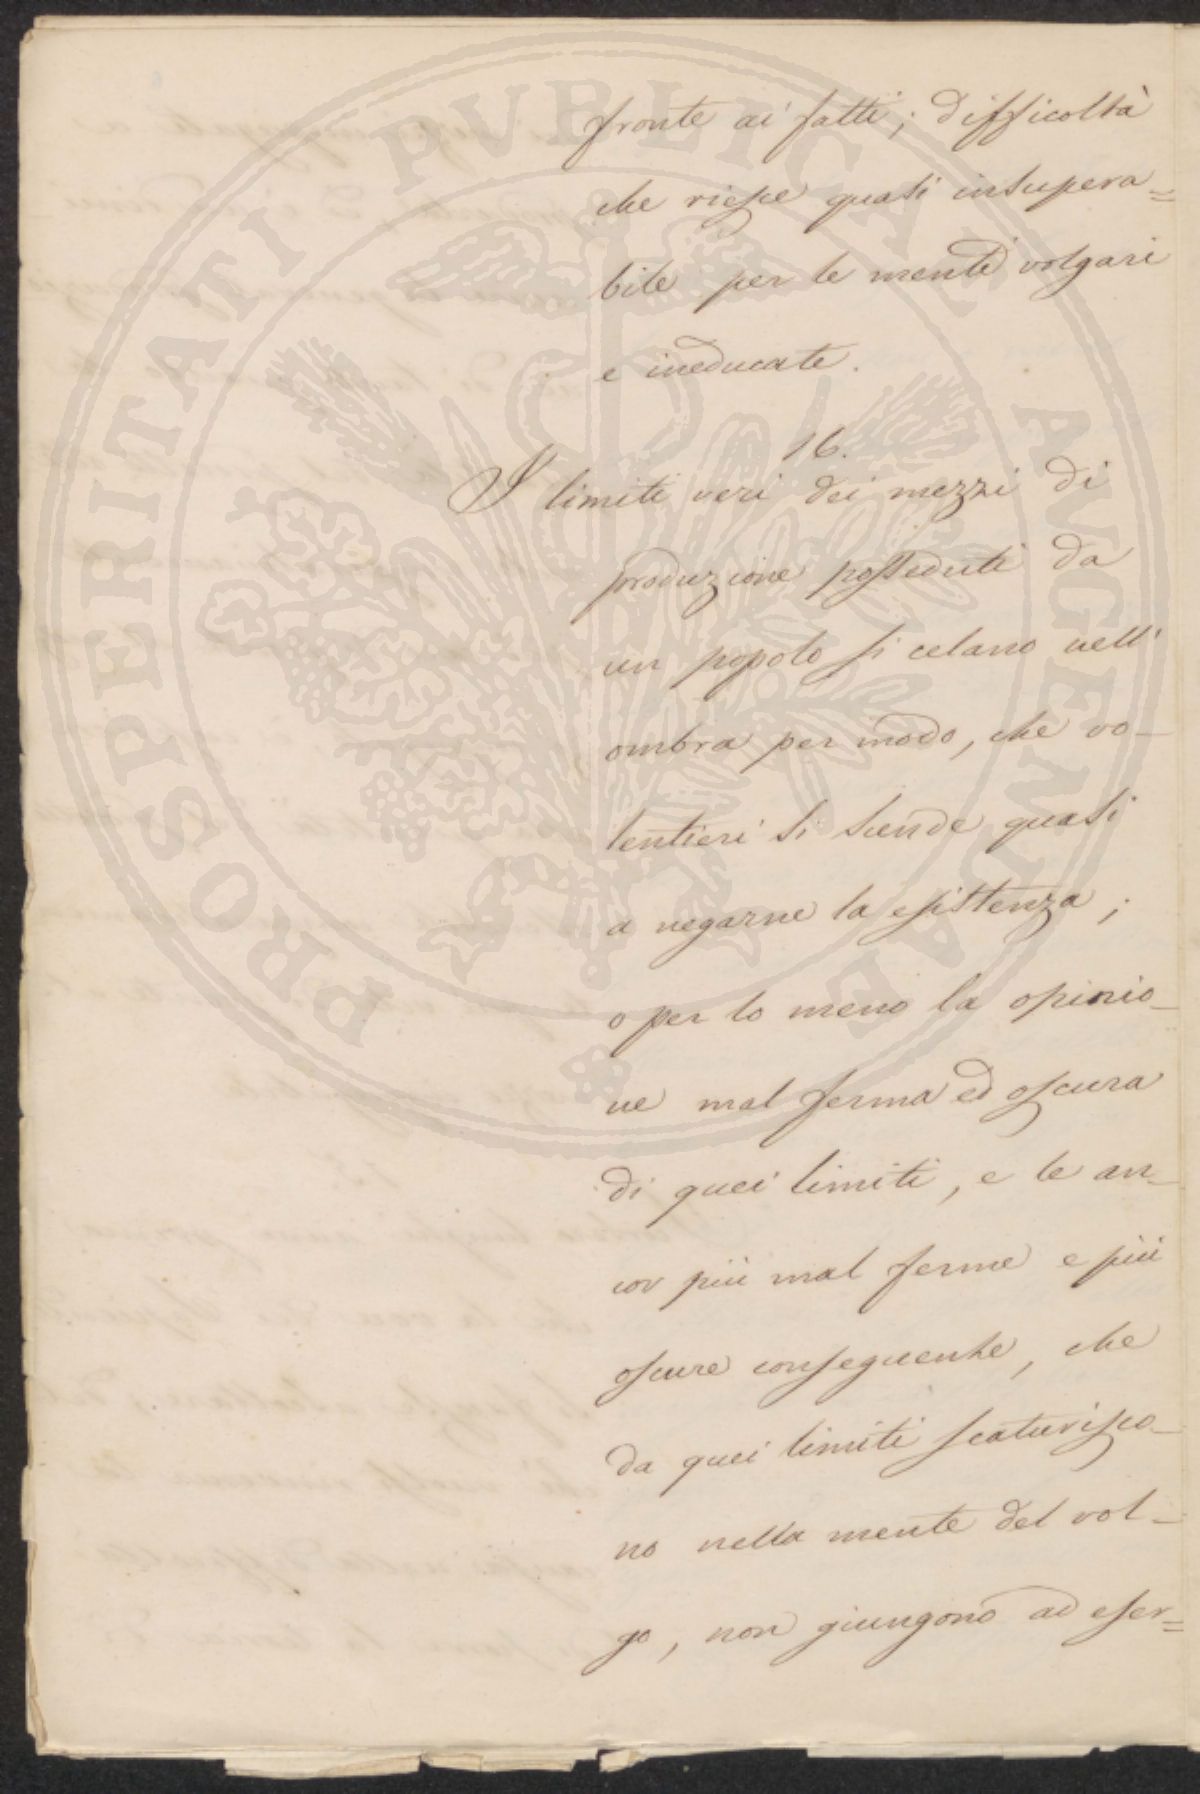 fronte ai fatti; difficoltà
che riesce quasi insupera=
bile per le menti volgari
e ineducate.
16.
I limiti veri dei mezzi di
produzione posseduti da
un popolo si celano nell'
ombra per modo, che vo-
lentieri si scende quasi
a negarne la esistenza;
o per lo meno la opinio-
ne mal ferma ed oscura
di quei limiti, e le an-
cor più mal ferme e più
oscure conseguenze, che
da quei limiti scaturisco-
no nella mente del vol-
go, non giungono ad eser=
PROSPERITATI PVBLICAE AVGENDAE